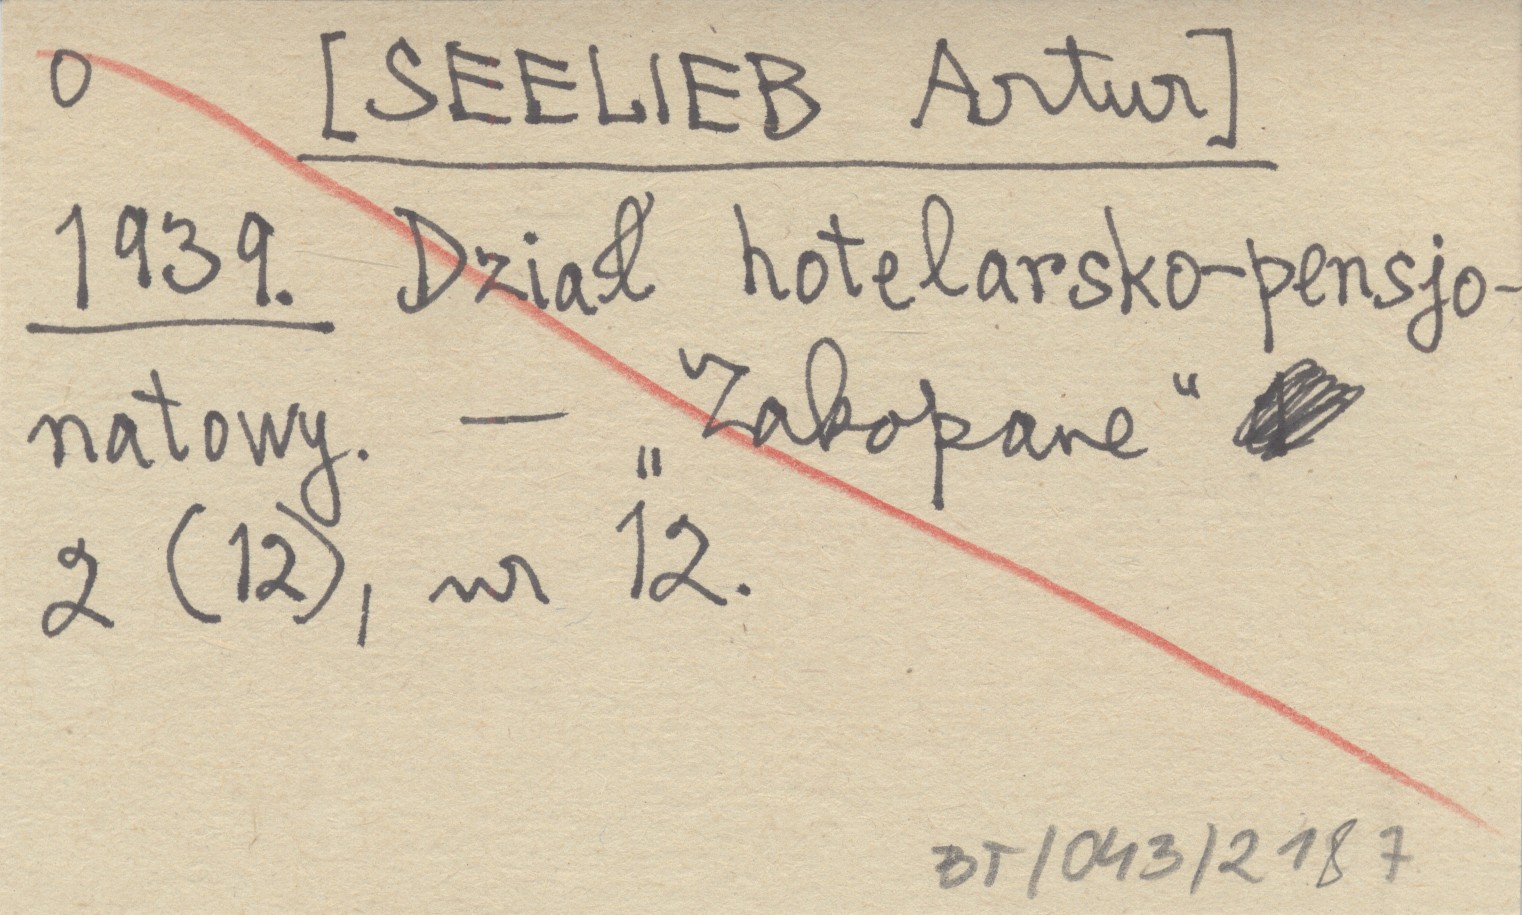 0 [SEELIEB Artur]
1939. Dział hotelarsko-pensjo-
natowy. — "Zakopane"
2 (12), nr 12.
BT/043/2187